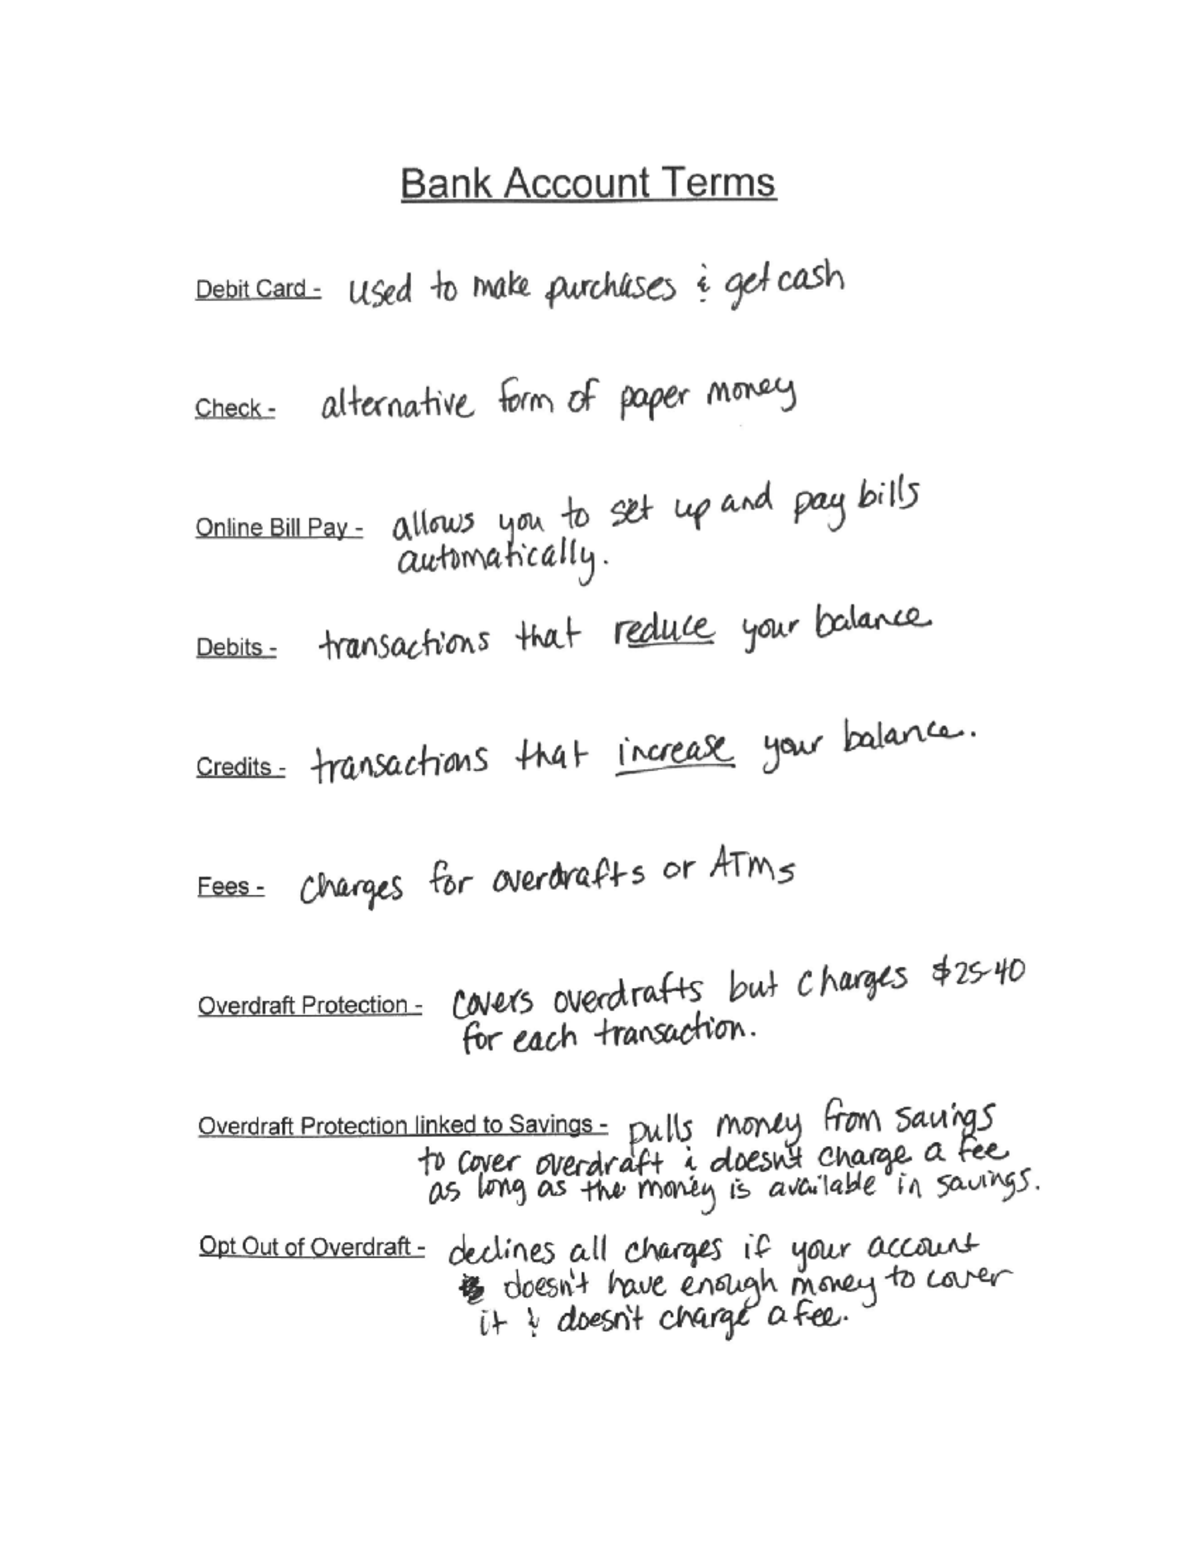 Bank Account Terms
Debit Card - used to make purchases & get cash
Check - alternative form of paper money
Online Bill Pay - allows you to set up and pay bills
automatically.
Debits - transactions that reduce your balance
Credits - transactions that increase your balance.
Fees - charges for overdrafts or ATMs
Overdraft Protection - covers overdrafts but charges $25-40
for each transaction.
Overdraft Protection linked to Savings - pulls money from savings
to cover overdraft & doesn't charge a fee
as long as the money is available in savings.
Opt Out of Overdraft - declines all charges if your account
doesn't have enough money to cover
it & doesn't charge a fee.